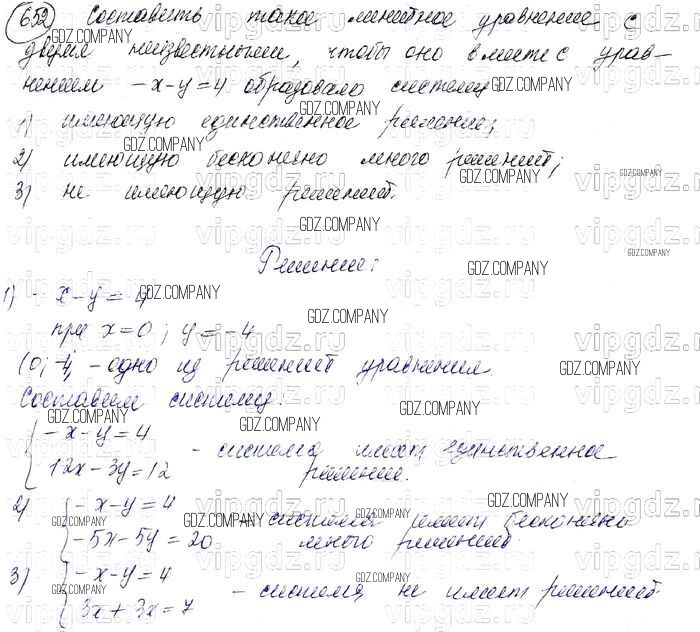 652 Составить такое линейное уравнение с
двумя неизвестными, чтобы оно вместе с урав-
нением -x-y=4 образовало систему
1) имеющую единственное решение;
2) имеющую бесконечно много решений;
3) не имеющую решений.
Решение:
1) -x-y=4
при x=0; y=-4
(0; -4, - одно из решений уравнения
Составим систему:
{ -x-y=4
12x-3y=12 - система имеет единственное
решение.
2) { -x-y=4
-5x-5y=20 - система имеет бесконечно
много решений
3) { -x-y=4
3x+3x=7 - система не имеет решений
GDZ.COMPANY
vipgdz.ru